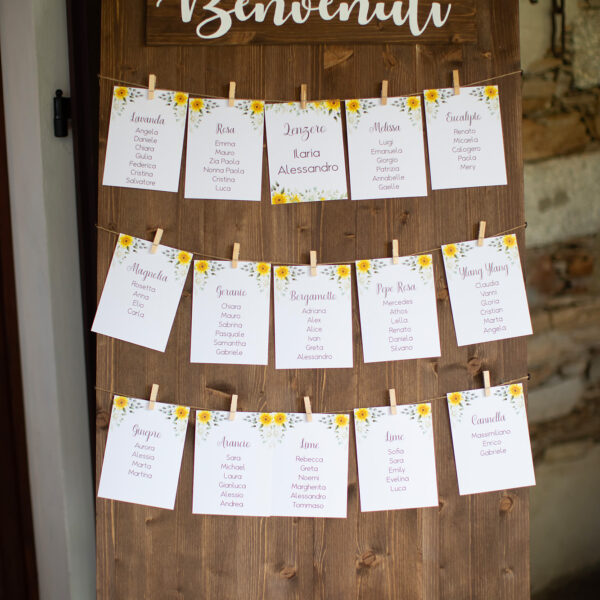 Benvenuti
Lavanda
Angela
Daniele
Chiara
Giulia
Federica
Cristina
Salvatore
Rosa
Emma
Mauro
Zia Paola
Nonna Paola
Cristina
Luca
Zenzero
Ilaria
Alessandro
Melissa
Luigi
Emanuela
Giorgio
Patrizia
Annabelle
Gaelle
Eucalipto
Renato
Micaela
Calogero
Paola
Mery
Magnolia
Rosetta
Anna
Elio
Carla
Geranio
Chiara
Mauro
Sabrina
Pasquale
Samantha
Gabriele
Bergamotto
Adriana
Alex
Alice
Ivan
Greta
Alessandro
Pepe Rosa
Mercedes
Athos
Lella
Renato
Daniela
Silvano
Ylang Ylang
Claudia
Vanni
Gloria
Cristian
Marta
Angela
Ginepro
Aurora
Alessia
Marta
Martina
Arancio
Sara
Michael
Laura
Gianluca
Alessio
Andrea
Lime
Rebecca
Greta
Noemi
Margherita
Alessandro
Tommaso
Lime
Sofia
Sara
Emily
Evelina
Luca
Cannella
Massimiliano
Enrico
Gabriele